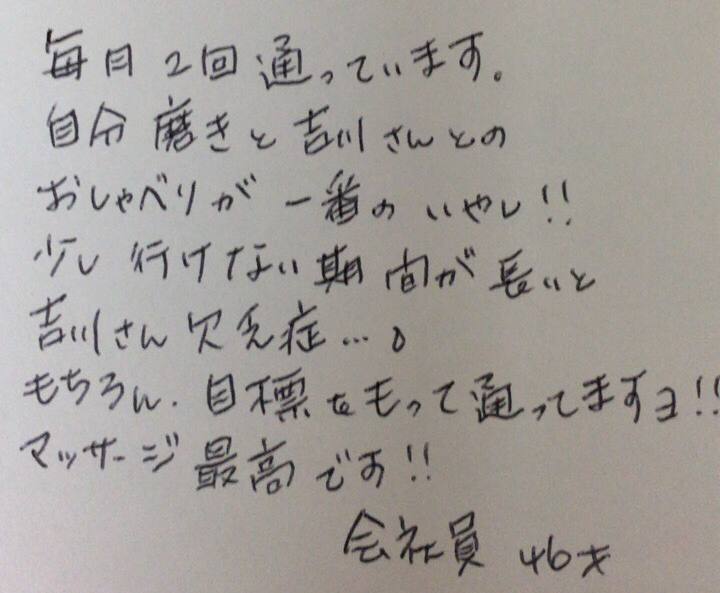 毎月2回通っています。
自分磨きと吉川さんとの
おしゃべりが一番のいやし!!
少し行けない期間が長いと
吉川さん欠乏症…。
もちろん、目標をもって通ってますヨ!!
マッサージ最高です!!
会社員 46才